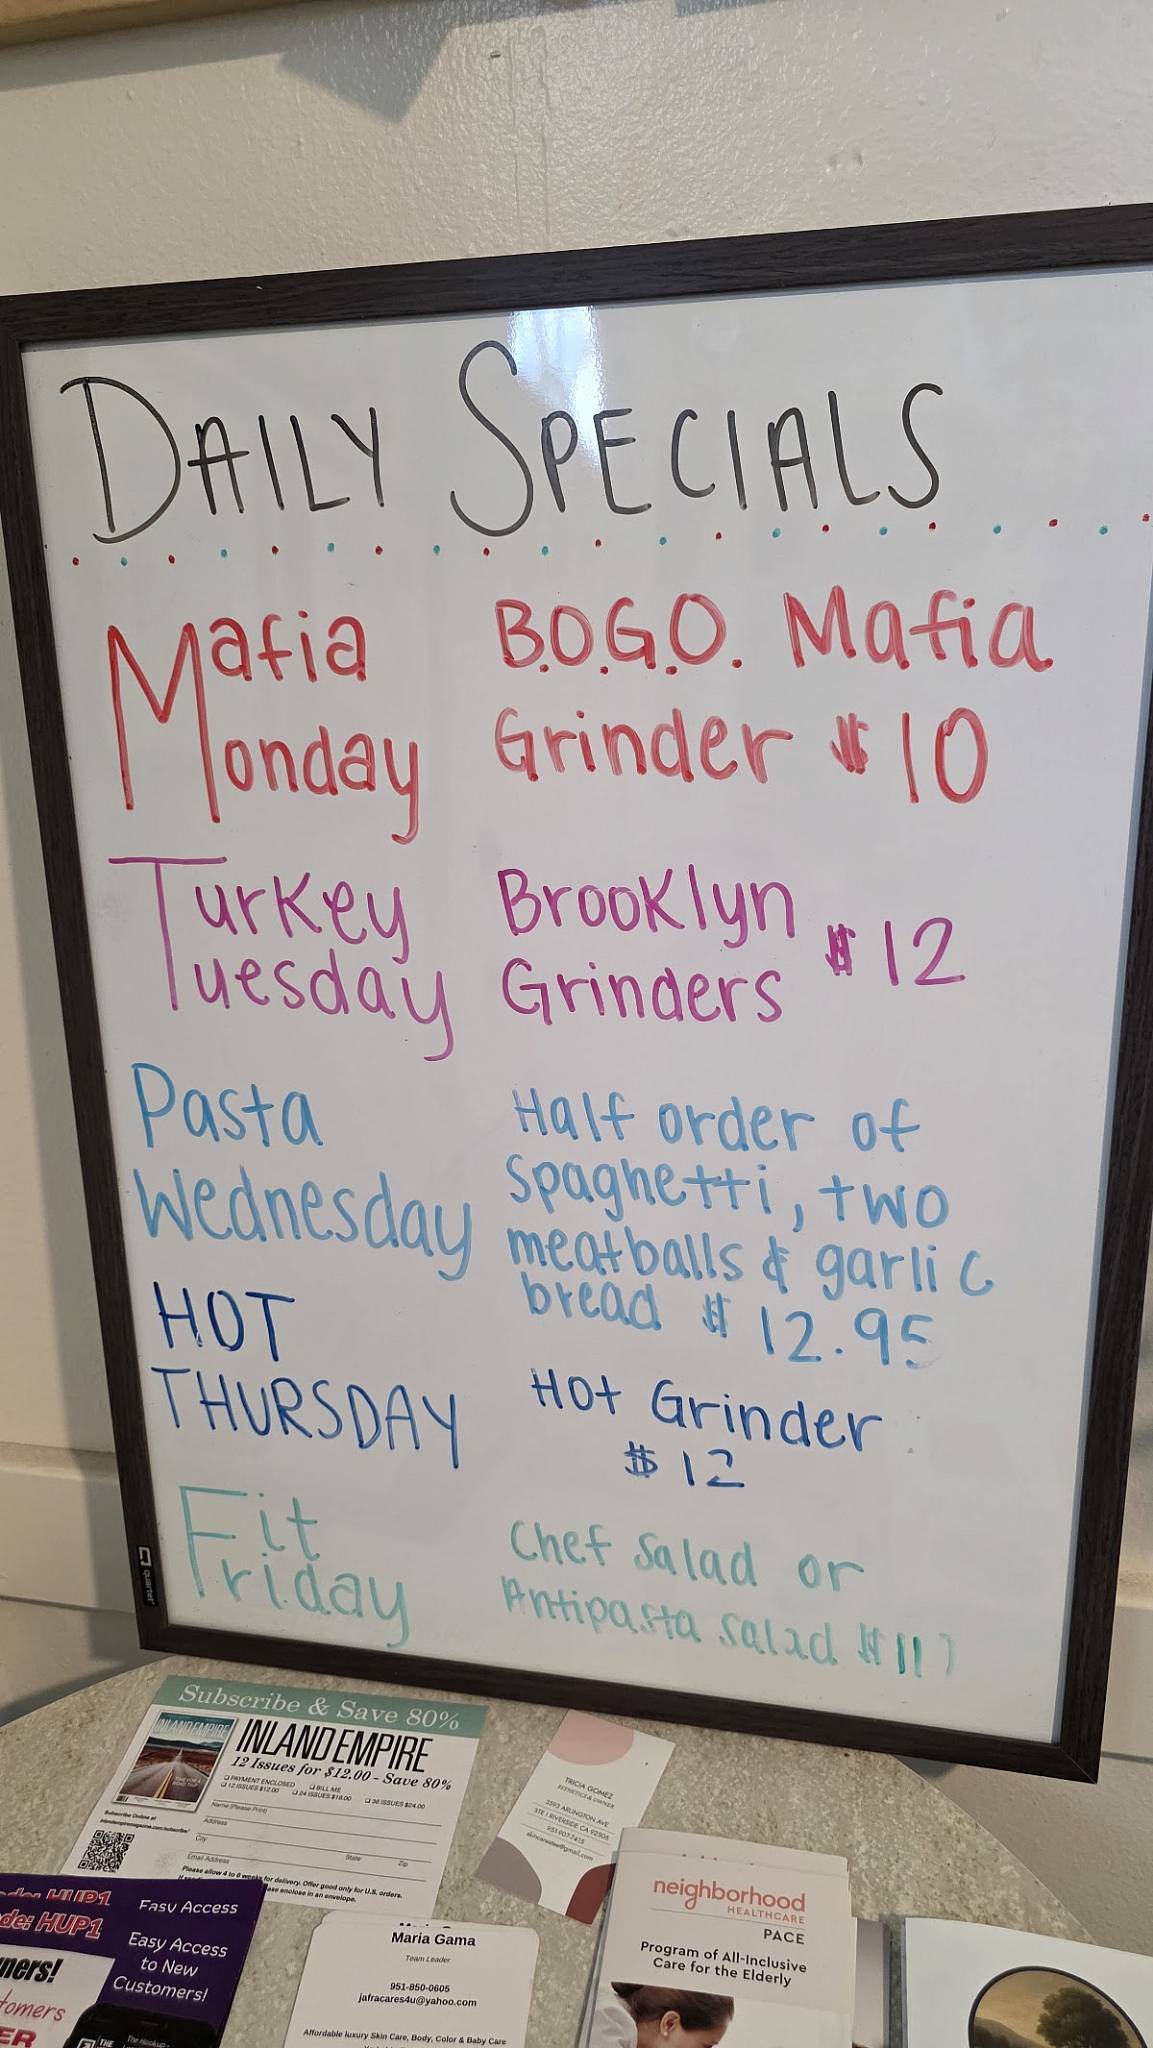 DAILY SPECIALS
Mafia Monday
B.O.G.O. Mafia
Grinder $10
Turkey Tuesday
Brooklyn
Grinders $12
Pasta
Wednesday
Half order of
spaghetti, two
meatballs & garlic
bread $12.95
HOT
THURSDAY
Hot Grinder
$12
Fit Friday
Chef salad or
Antipasta salad
quartet
Subscribe & Save 80%
INLAND EMPIRE
12 Issues for $12.00 - Save 80%
PAYMENT ENCLOSED BILL ME
12 ISSUES $12.00 24 ISSUES $18.00 36 ISSUES $24.00
Name (Please Print)
Address
City State Zip
Email Address
Subscribe Online at
inlandempiremagazine.com/subscribe/
Please allow 4 to 6 weeks for delivery. Offer good only for U.S. orders.
enclose in an envelope.
INLAND EMPIRE
TRICIA GOMEZ
ESTHETICS & OWNER
3593 ARLINGTON AVE
STE I RIVERSIDE CA 92506
951-907-7415
neighborhood
HEALTHCARE
PACE
Program of All-Inclusive
Care for the Elderly
Maria Gama
Team Leader
951-850-0605
jafracares4u@yahoo.com
Affordable luxury Skin Care, Body, Color & Baby Care
HUP1
de: HUP1
Easy Access
Easy Access
to New
Customers!
ners!
tomers
ER
THE